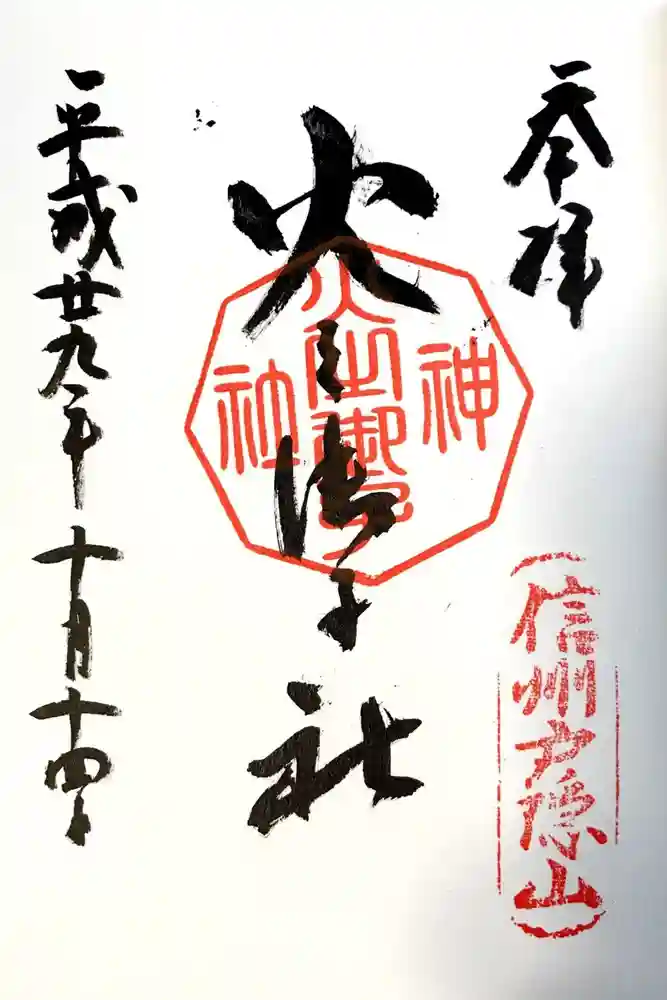 奉拝
信州戸隠山
火之御子社
神
火之御子
社
平成廿九年十月十四日